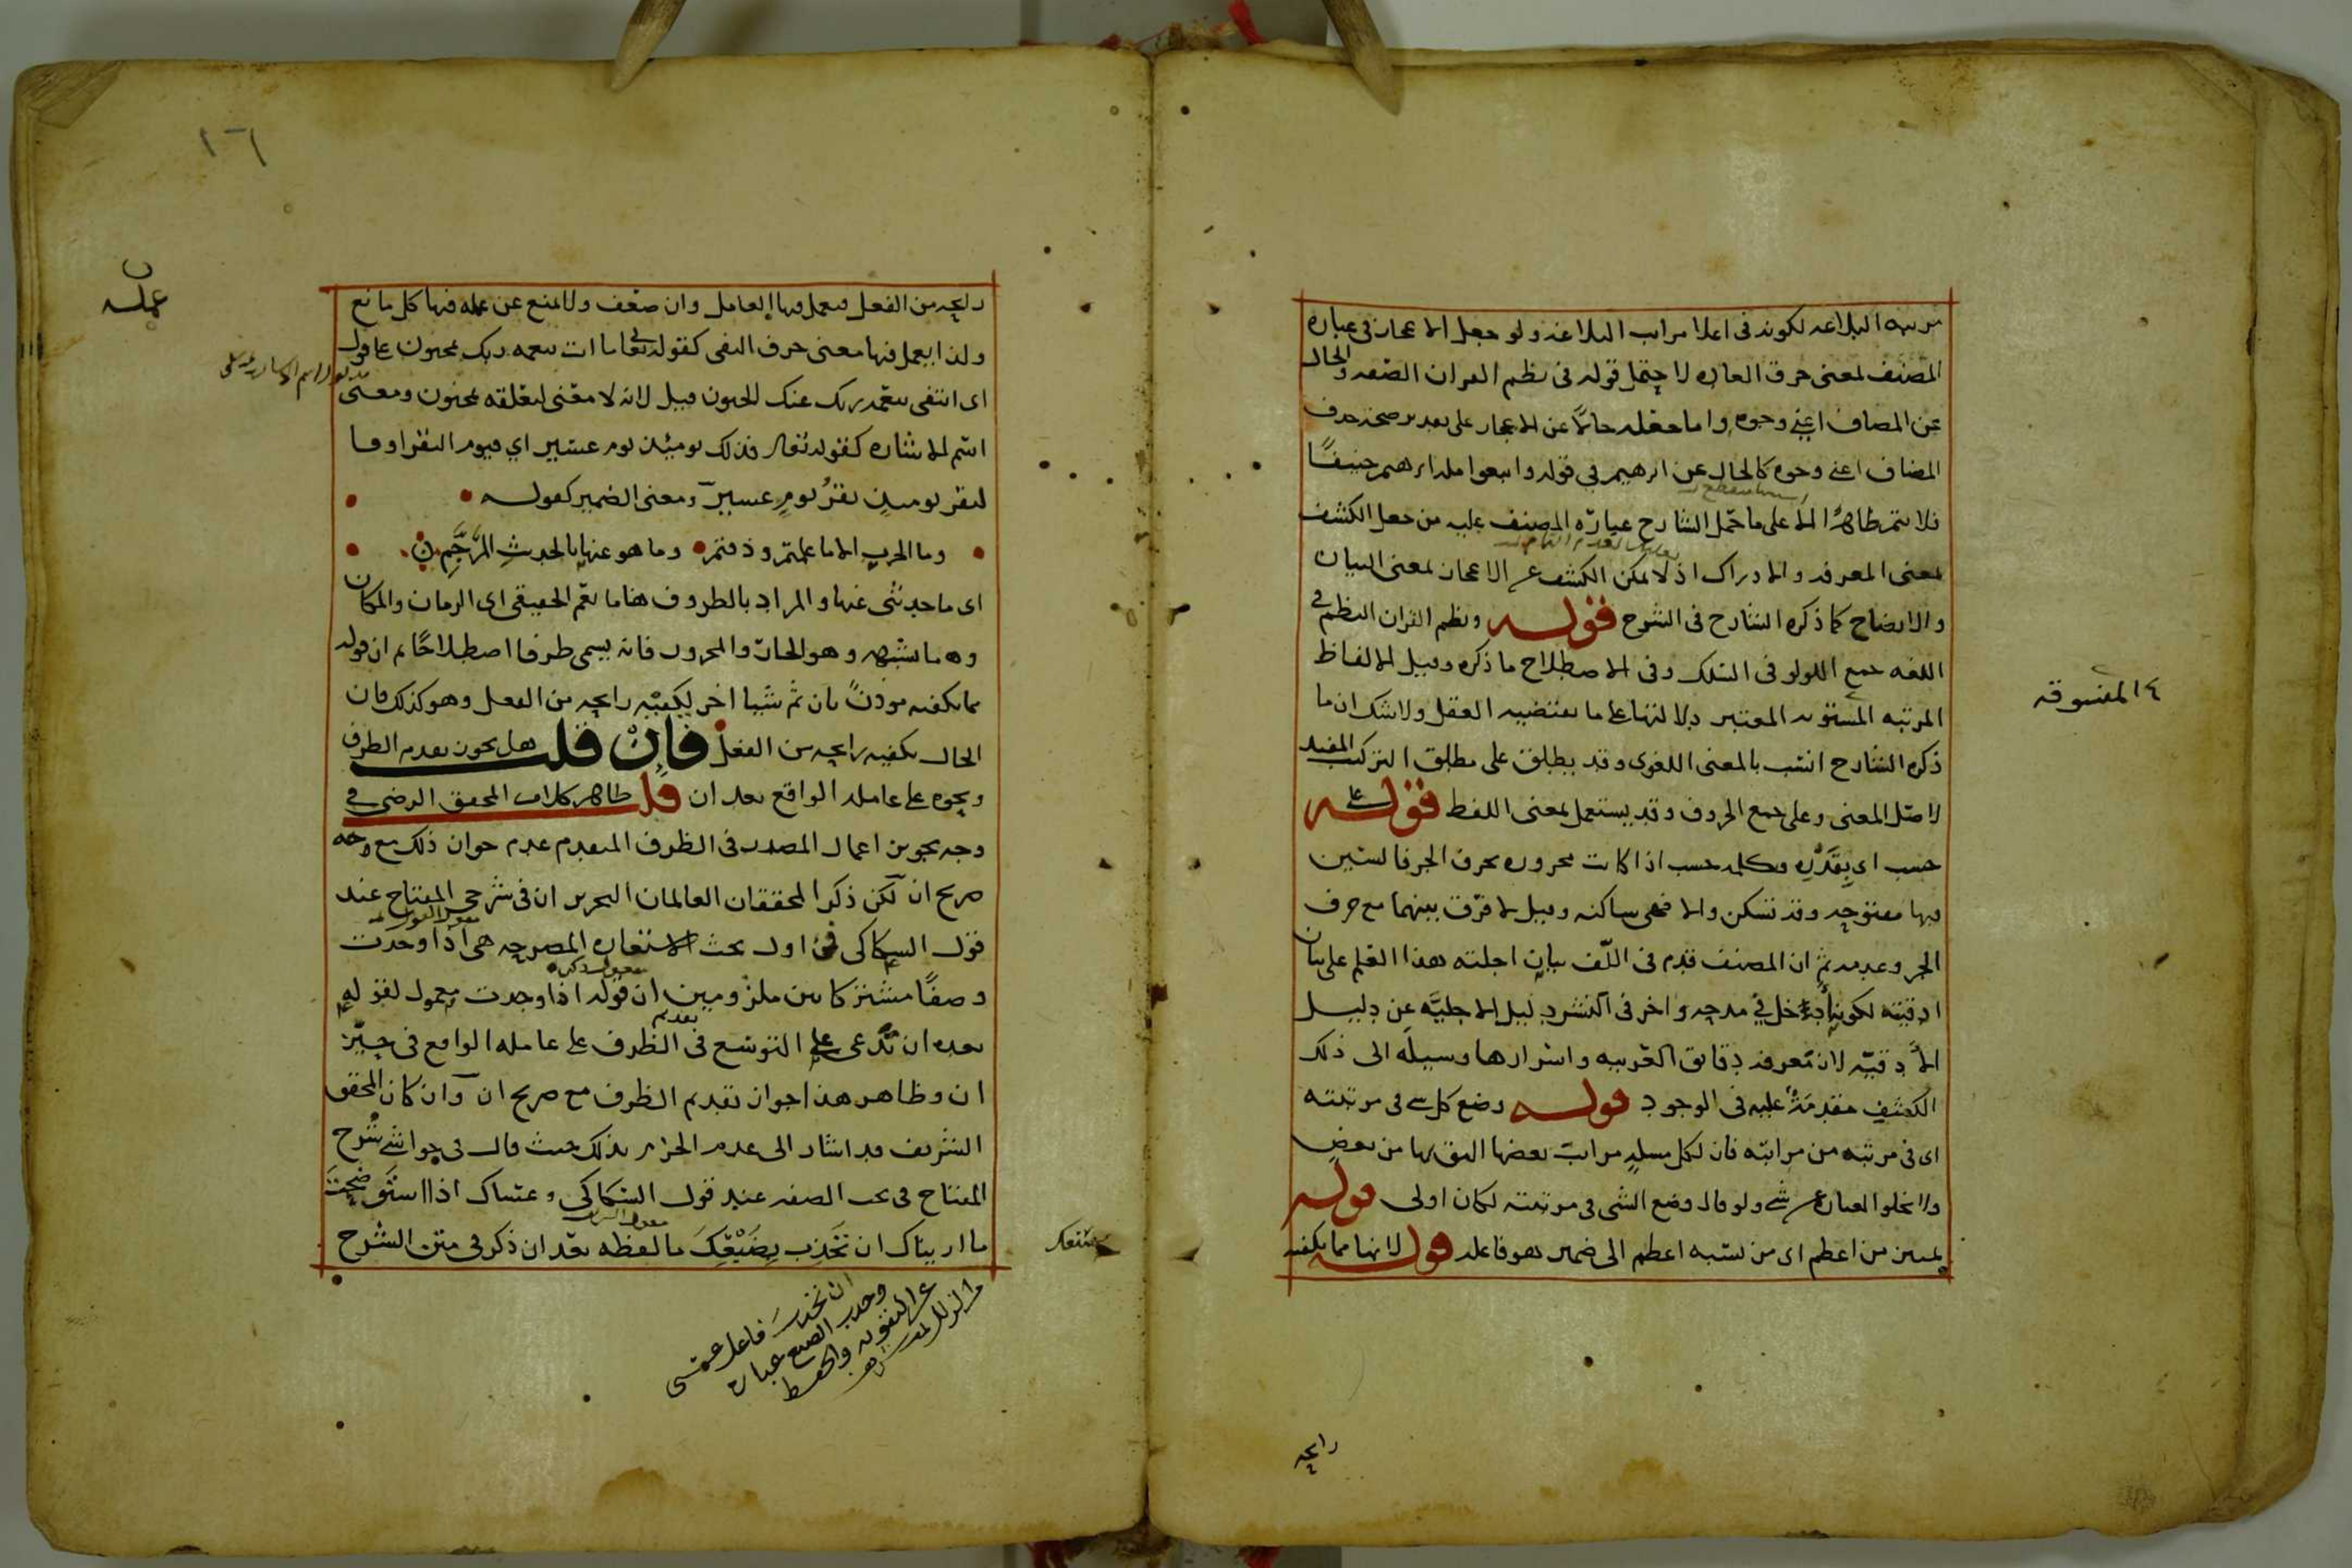 مرتبه البلاغه لكونه فى اعلا مراتب البلاغه ولو جعل الاعجاز فى عباره
المصنف لمعنى خرق العاده لاحتمل قوله فى نظم القران الصفه والحال
عن المضاف اعنى وجوه واما جعله حالاً عن الاعجاز على تقدير صحة حذف
المضاف اعنى وجوه كالحال عن ابرهيم في قوله واتبعوا مله ابرهيم حنيفاً
فلا يتم ظاهراً الا على ما حمل الشارح عبارة المصنف عليه من جعل الكشف
لمعنى المعرفه والادراك اذ لا يمكن الكشف عن الاعجاز لمعنى البيان
والايضاح كما ذكره الشارح فى الشرح قوله ونظم القران النظم في
اللغه جمع اللولو فى السلك وفى الاصطلاح ما ذكره وقيل الالفاظ
المرتبه المسوقه المعتبر دلالتها على ما يقتضيه العقل ولا شك ان ما
٤ المنسوقه
ذكره الشارح انسب بالمعنى اللغوى وقد يطلق على مطلق التركيب المفيد
لاصل المعنى وعلى جمع الحروف وقد يستعمل لمعنى اللفظ قوله على
حسب اى بقدر وكلمه حسب اذا كانت مجروره بحرف الجر فالسين
فيها مفتوحه وقد تسكن والا فهى ساكنه وقيل لا فرق بينهما مع حرف
الجر وعدمه ثم ان المصنف قدم فى اللف بيان اجلته هذا العلم على بيان
ادقيته لكونها ادخل في مدحه واخر فى النشر دليل الاجليه عن دليل
الادقيه لان معرفه دقايق العربيه واسرارها وسيله الى ذلك
الكشف مقدمة عليه فى الوجود قوله وضع كل شى فى مرتبته
اى فى مرتبه من مراتبه فان لكل مسله مراتب بعضها اليق بها من بعض
ولا يخلوا العباره عن شے ولو قال وضع الشى فى مرتبته لكان اولى قوله
تمييز من اعظم اى من نسبه اعظم الى ضمير هو فاعله قوله لانها مما يكفيه
رايحه
رايحه من الفعل فيعمل فيها العامل وان ضعف ولا يمنع عن عمله فيها كل مانع
ولذا يعمل فيها معنى حرف النفى كقوله تعالى ما انت بنعمه ربك بمجنون على قول
اى انتفى بنعمه ربك عنك الجنون قيل لانه لا معنى لتعلقه بمجنون ومعنى
اسم الاشاره كقوله تعالى فذلك يوميذ يوم عسير اي فيوم النقر اوفا
لنقر يوميذ نقرُ يومٍ عسير ومعنى الضمير كقوله
وما الحرب الا ما علمتم وذقتم وما هو عنها بالحديثِ المرجَّمِ
اى ما حديثى عنها والمراد بالظروف هنا ما يعم الحقيقى اى الزمان والمكان
وما يشبهه وهو الجار والمجرور فانه يسمى ظرفا اصطلاحًا ثم ان قوله
مما يكفيه موذن بان ثم شيا اخر يكفيه رايحه من الفعل وهو كذلك فان
الحال يكفيه رايحه من الفعل فان قلت هل يجوز تقدم الظرف
ونحوه على عامله الواقع بعد ان قلت ظاهر كلام المحقق الرضى في
وجه تجويز اعمال المصدر فى الظرف المتقدم عدم جواز ذلك مع وجه
صريح ان لكن ذكر المحققان العالمان النحريران فى شرحى المفتاح عند
قول السكاكى فى اول بحث الاستعاره المصرحه هى اذا وجدت
وصفًا مشتركا بين ملزومين ان قوله اذا وجدت معمول لقوله
بعده ان تدعى على التوسع فى تقديم الظرف على عامله الواقع فى حيّز
ان وظاهر هذا جواز تقديم الظرف مع صريح ان وان كان المحقق
الشريف قد اشار الى عدم الجزم بذلك حيث قال فى حواشى شرح
المفتاح فى بحث الصفه عند قول السكاكى وعساك اذا استوضحت
ما اريناك ان تجذب بضبعك ما لفظه بعد ان ذكر فى متن الشرح
ان تجذب فاعل عسى
وجذب الضبع عباره
عن التقويه والحفظ